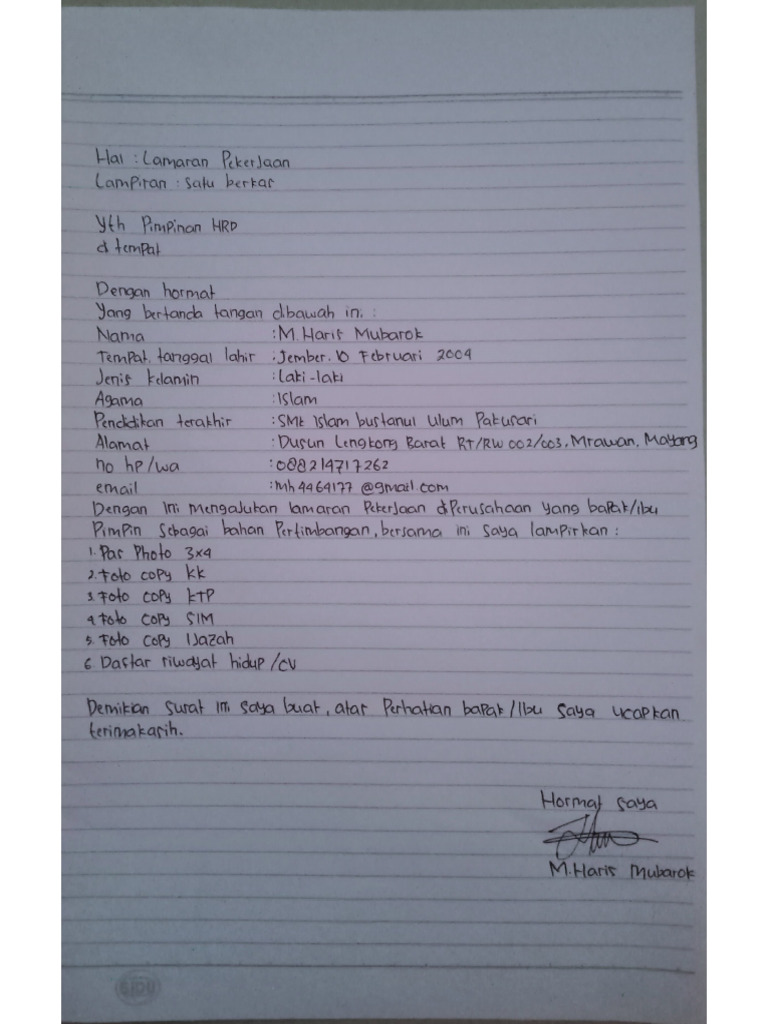 Hal : Lamaran Pekerjaan
Lampiran : satu berkas
Yth Pimpinan HRD
di tempat
Dengan hormat
Yang bertanda tangan dibawah ini :
Nama : M. Haris Mubarok
Tempat, tanggal lahir : Jember, 10 Februari 2004
Jenis kelamin : Laki-laki
Agama : Islam
Pendidikan terakhir : SMK Islam bustanul ulum Pakusari
Alamat : Dusun Lengkong Barat RT/RW 002/003, Mrawan, Mayang
no hp/wa : 088214717262
email : mh4464177@gmail.com
Dengan ini mengajukan lamaran Pekerjaan diPerusahaan yang bapak/ibu
Pimpin sebagai bahan Pertimbangan, bersama ini saya lampirkan :
1. Pas Photo 3x4
2. Foto copy KK
3. Foto copy KTP
4. Foto copy SIM
5. Foto copy Ijazah
6. Daftar riwayat hidup/CV
Demikian surat ini saya buat, atas Perhatian bapak/Ibu saya ucapkan
terimakasih.
Hormat saya
M. Haris Mubarok
SIDU